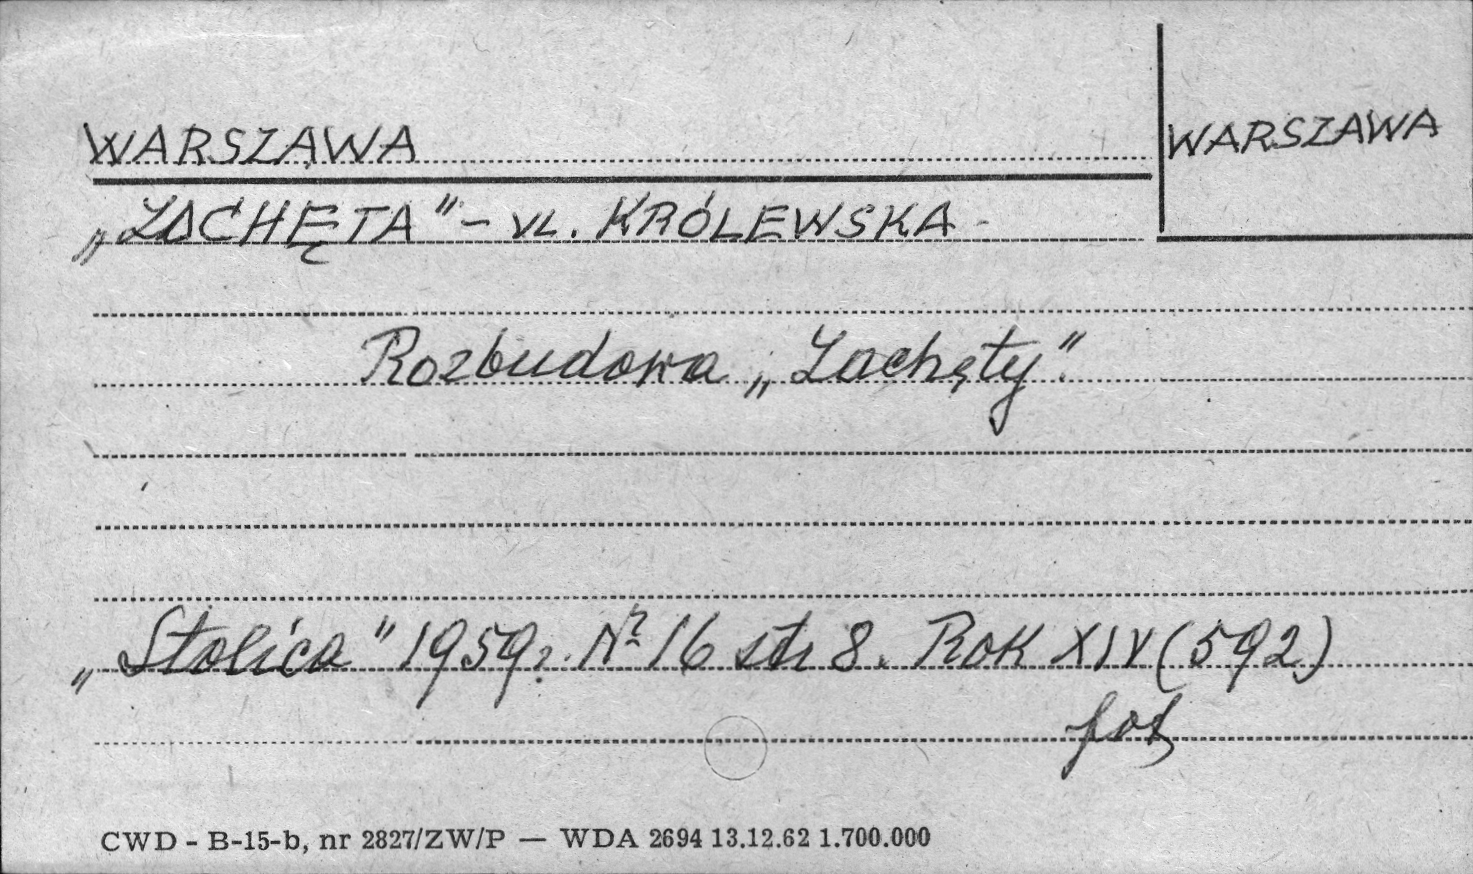 WARSZAWA
WARSZAWA
„ZACHĘTA” – UL. KRÓLEWSKA -
Rozbudowa „Zachęty”.
„Stolica” 1959r. Nr 16 str 8. Rok XIV (592)
fot
CWD - B-15-b, nr 2827/ZW/P — WDA 2694 13.12.62 1.700.000